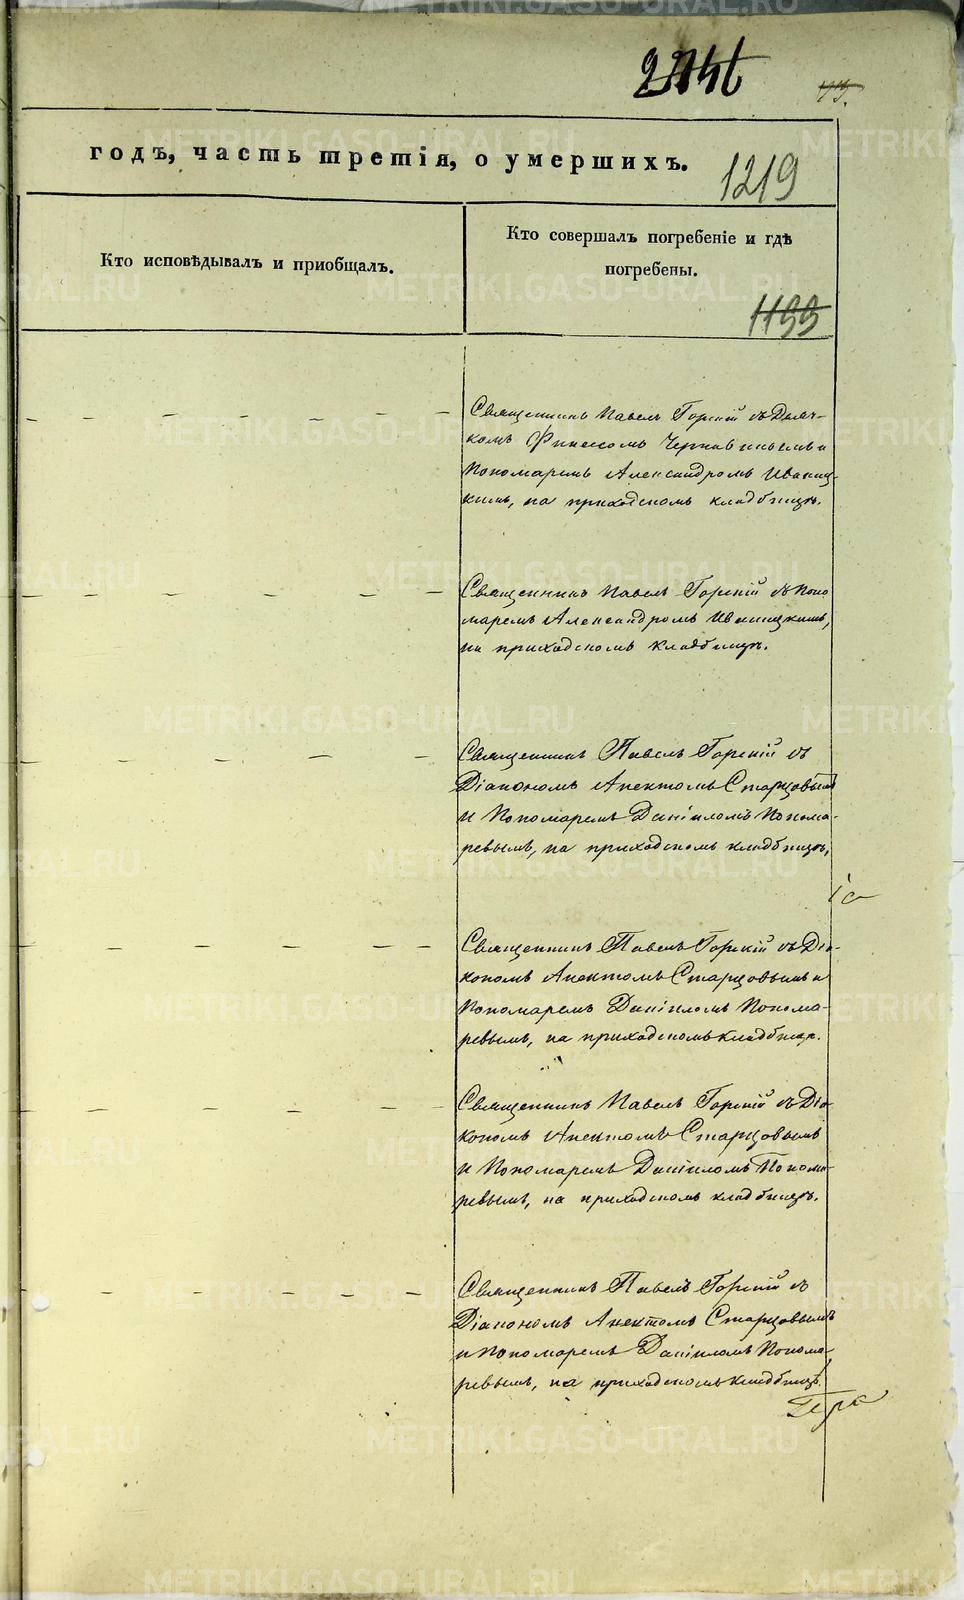 годъ, часть третія, о умершихъ.
1219
Кто исповѣдывалъ и приобщалъ.
Кто совершалъ погребеніе и гдѣ
погребены.
1199
Священникъ Павелъ Горскій съ Дьяч-
комъ Черновинымъ и
Пономаремъ Александромъ Иваниц-
кимъ, на приходскомъ кладбищѣ.
Священникъ Павелъ Горскій съ Поно
маремъ Александромъ Иваницкимъ,
на приходскомъ кладбищѣ.
Священникъ Павелъ Горскій съ
Діакономъ Анектомъ Старцовымъ
и Пономаремъ Даніиломъ Понома-
ревымъ, на приходскомъ кладбищѣ,
Священникъ Павелъ Горскій съ Діа-
кономъ Анектомъ Старцовымъ и
Пономаремъ Даніиломъ Понома-
ревымъ, на приходскомъ кладбищѣ.
Священникъ Павелъ Горскій съ Діа-
кономъ Анектомъ Старцовымъ
и Пономаремъ Даніиломъ Понома-
ревымъ, на приходскомъ кладбищѣ.
Священникъ Павелъ Горскій съ
Діакономъ Анектомъ Старцовымъ
и Пономаремъ Даніиломъ Понома-
ревымъ, на приходскомъ кладбищѣ.
METRIKI.GASO-URAL.RU